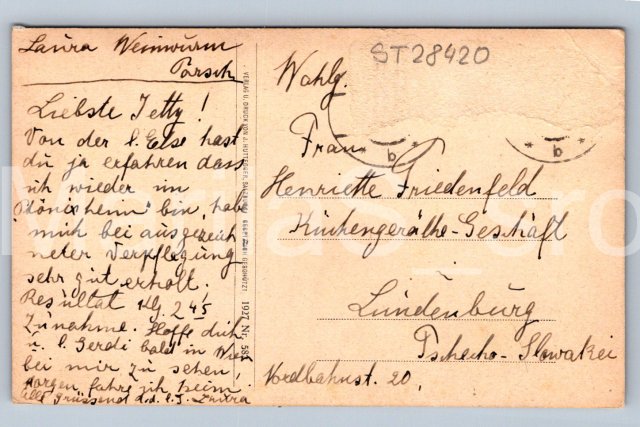 Laura Weinwurm
Porsch
Liebste Jetty!
Von der l. Else hast
du ja erfahren dass
ich wieder im
"Königsheim" bin, habe
mich bei ausgezeich
neter Verpflegung
sehr gut erholt.
Resultat Kg. 2 45
Zunahme. Hoffe dich
u. l. Gerdi bald in Wien
bei mir zu sehen,
morgen fahre ich heim
Alle grüssend d. d. l. J. Laura
VERLAG U. DRUCK VON J. HUTTEGGER, SALZBURG
GESETZLICH GESCHÜTZT
1927 Nr. 585
ST28420
Wohlg.
Frau
b
b
Henriette Friedenfeld
Küchengeräthe-Geschäft
Lundenburg
Tschecho-Slowakei
Nordbahnst. 20,